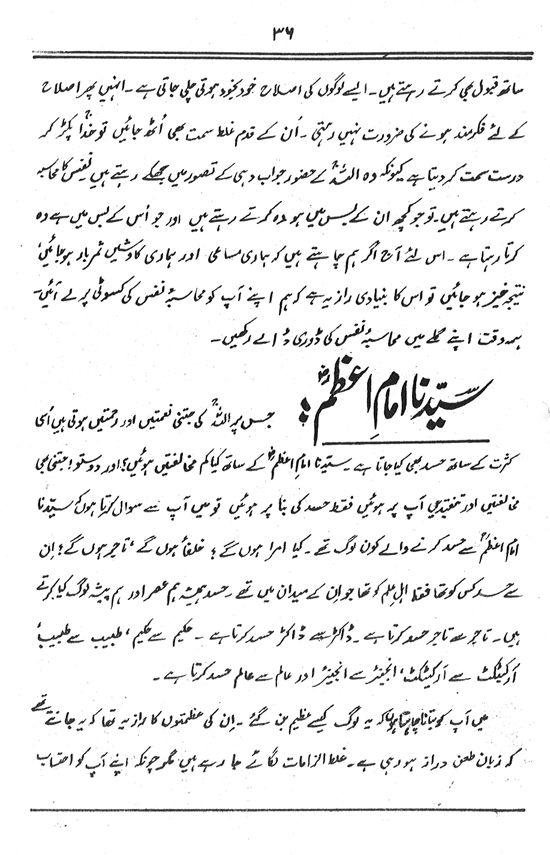 ۳۶
ساتھ قبول بھی کرتے رہتے ہیں۔ ایسے لوگوں کی اصلاح خود بخود ہوتی چلی جاتی ہے۔ انہیں پھر اصلاح
کے لئے فکرمند ہونے کی ضرورت نہیں رہتی۔ اُن کے قدم غلط سمت بھی اُٹھ جائیں تو خُدا پکڑ کر
درست سمت کر دیتا ہے کیونکہ وہ اللہ کے حضور جواب دہی کے تصور میں جھکے رہتے ہیں نفس کا محاسبہ
کرتے رہتے ہیں۔ تو جو کچھ ان کے بس میں ہو وہ کرتے رہتے ہیں اور جو اُس کے بس میں ہے وہ
کرتا رہتا ہے۔ اس لئے آج اگر ہم چاہتے ہیں کہ ہماری مساعی اور ہماری کاوشیں ثمر بار ہو جائیں،
نتیجہ خیز ہو جائیں تو اس کا بنیادی راز یہ ہے کہ ہم اپنے آپ کو محاسبۂ نفس کی کسوٹی پر لے آئیں۔
ہمہ وقت اپنے گلے میں محاسبۂ نفس کی ڈوری ڈالے رکھیں۔
سیّدنا امامِ اعظمؓ:
جس پر اللہ کی جتنی نعمتیں اور رحمتیں ہوتی ہیں اُسی
کثرت کے ساتھ حسد بھی کیا جاتا ہے۔ سیّدنا امام اعظمؓ کے ساتھ کیا کم مخالفتیں ہوئیں؟ اور دوستو! جتنی بھی
مخالفتیں اور تنقیدیں آپ پر ہوئیں فقط حسد کی بنا پر ہوئیں تو میں آپ سے سوال کرتا ہوں کہ سیّدنا
امام اعظمؓ سے حسد کرنے والے کون لوگ تھے۔ کیا امرا ہوں گے؟ خلفاً ہوں گے، تاجر ہوں گے؟ اِن
سے حسد کس کو تھا فقط اہلِ علم کو تھا جو اِن کے میدان میں تھے۔ حسد ہمیشہ ہم عصر اور ہم پیشہ لوگ کیا کرتے
ہیں۔ تاجر سے تاجر حسد کرتا ہے۔ ڈاکٹر سے ڈاکٹر حسد کرتا ہے۔ حکیم سے حکیم، طبیب سے طبیب،
آرکیٹکٹ سے آرکیٹکٹ، انجینئر سے انجینئر اور عالم سے عالم حسد کرتا ہے۔
میں آپ کو بتانا چاہتا ہوں کہ یہ لوگ کیسے عظیم بن گئے۔ اِن کی عظمتوں کا راز یہ تھا کہ یہ جانتے تھے
کہ زبان طعن دراز ہو رہی ہے۔ غلط الزامات لگائے جا رہے ہیں مگر چونکہ اپنے آپ کو احتساب